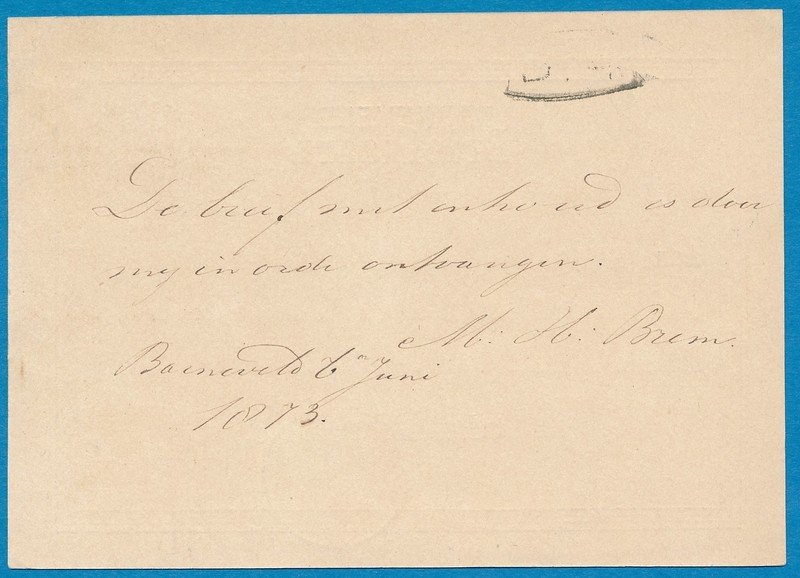 De brief met inhoud is door
my in orde ontvangen.
M: H: Brem.
Barneveld 6 en Juni
1873.